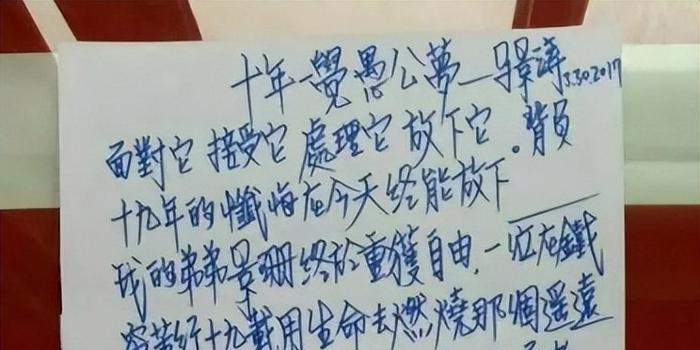 十年一覺愚公夢—馬景濤3.30.2017
面對它 接受它 處理它 放下它。背負
十九年的懺悔在今天终能放下
我的弟弟景珊終於重獲自由.一位在鐵
窑苦行十九載用生命去燃燒那個遥遠